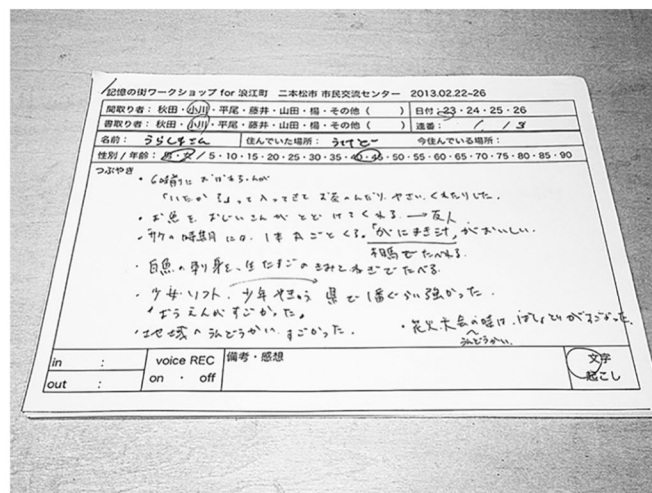 記憶の街ワークショップ for 浪江町 二本松市 市民交流センター 2013.02.22~26
聞取り者： 秋田・小川・平尾・藤井・山田・楊・その他（ ） 日付：23・24・25・26
書取り者： 秋田・小川・平尾・藤井・山田・楊・その他（ ） 連番： 1 / 3
名前： うらしまさん 住んでいた場所： うけど 今住んでいる場所：
性別 / 年齢： 男・女 / 5・10・15・20・25・30・35・40・45・50・55・60・65・70・75・80・85・90
つぶやき
・6時前に おばあちゃんが
「いたか る」って入ってきて お茶のんだり、やさい、くれたりした。
・お魚を おじいさんがとどけてくれる → 友人
の時期には、1本丸ごとくる。「がにまき汁」がおいしい。
相馬でたべれる
・白魚の刺身を、生たまごのきみとねぎでたべる
・少女ソフト、少年やきゅう 県で1番ぐらい強かった。
おうえんがすごかった。
・地域のうんどうかい すごかった。 ・花火大会の時は、ばしょとりがすごかった。
うんどうかい
in ： voice REC 備考・感想 文字
out ： on ・ off 起こし